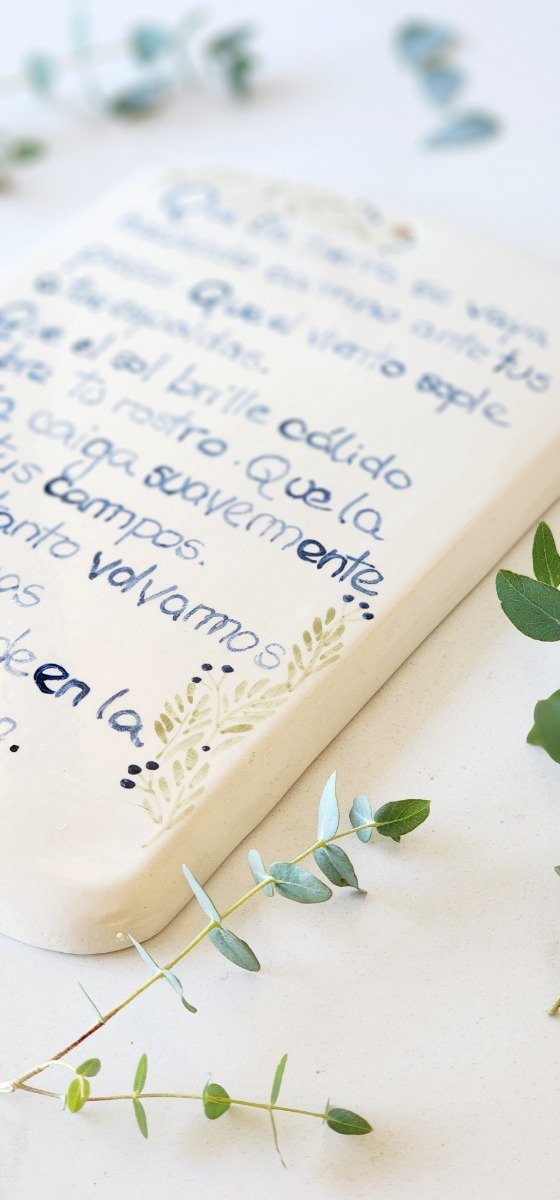 Que la tierra se vaya
camino ante tus
pasos Que el viento sople
a tus espaldas.
Que el sol brille cálido
tu rostro. Que la
caiga suavemente
tus campos.
tanto volvamos
de en la